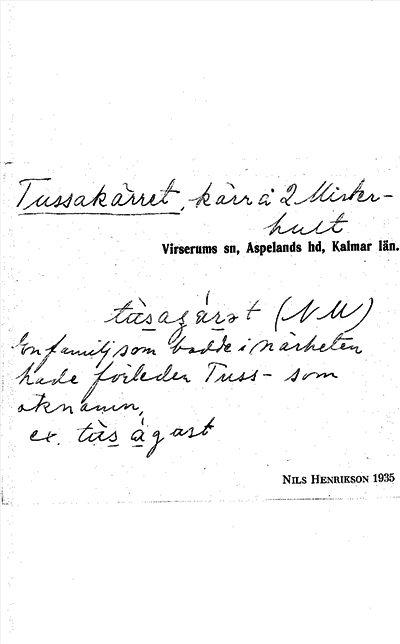 Tussakärret, kärr å 2 Mister-
hult
Virserums sn, Aspelands hd, Kalmar län.
tùsagárət (N M)
En familj som bodde i närheten
hade förleden Tuss- som
öknamn,
ex. tùs ágast
NILS HENRIKSON 1935